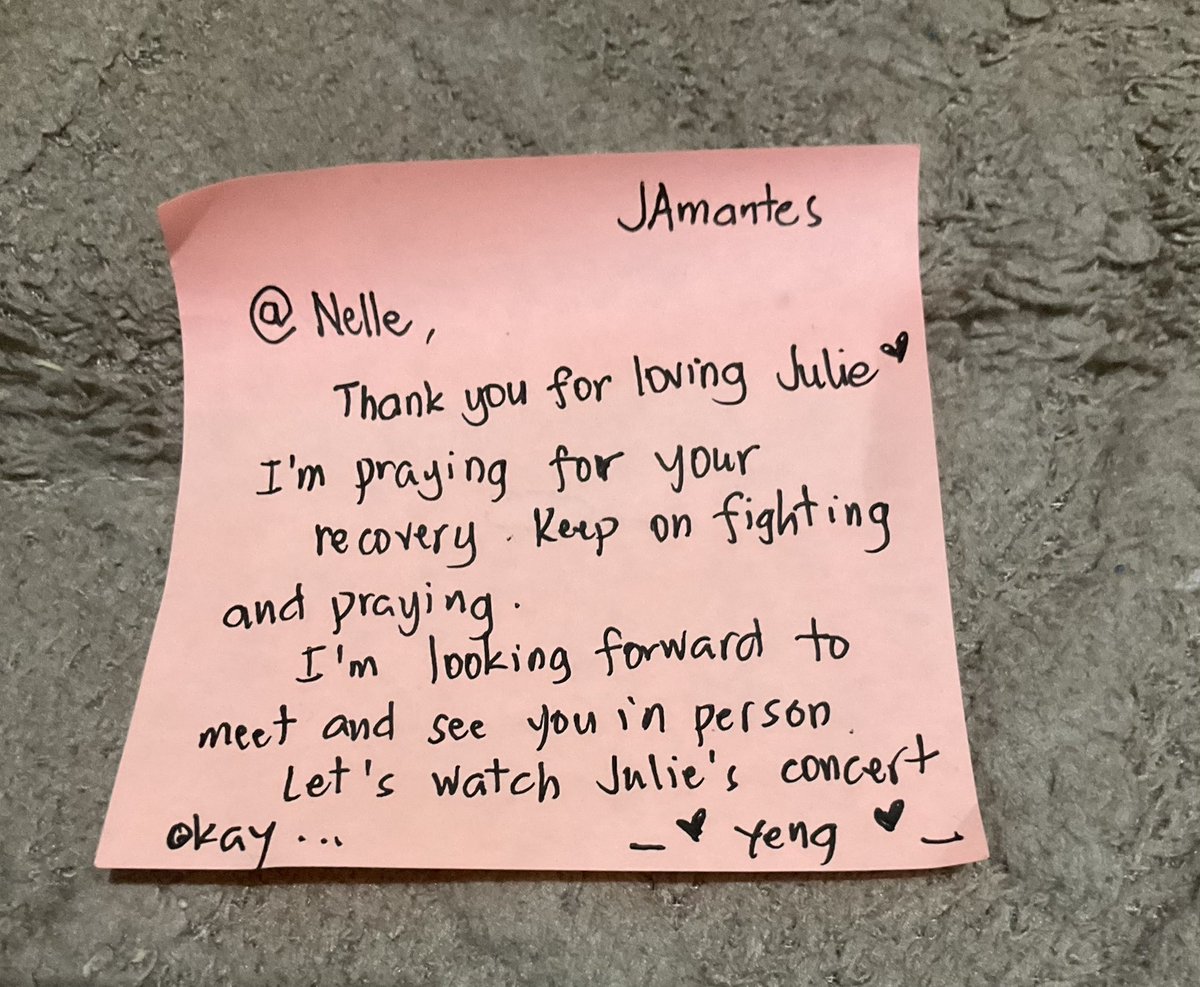 JAmantes
@ Nelle,
Thank you for loving Julie ♥
I'm praying for your
recovery. Keep on fighting
and praying.
I'm looking forward to
meet and see you in person.
Let's watch Julie's concert
okay... – ♥ Yeng ♥ –